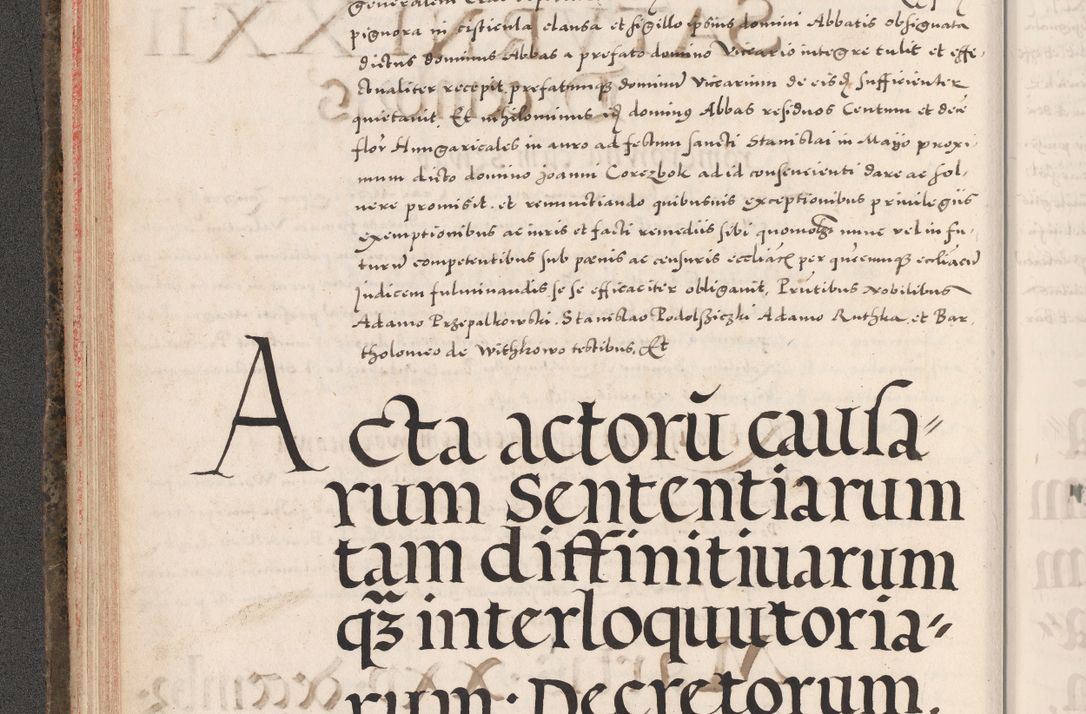 pignora in cisticula clausa et sigillo ipsius domini Abbatis obsignata
dictus dominus Abbas a prefato domino vicario integre tulit et effe-
ctualiter recepit, prefatumq₃ dominū vicarium de eisd sufficienter
quietauit. Et nihilominus id dominus Abbas residuos Centum et decē
flor Hungaricales in auro ad festum sancti Stanislai in Maijo proxi-
mum dicto domino Joanni Corezbok ad id consencienti dare ac sol-
uere promisit. et renunctiando quibusuis exceptionibus priuilegiis
exemptionibus ac iuris et facti remediis sibi quomolz nunc vel in fu-
turū competentibus sub pœnis ac censuris eccliac per quēcumq₃ eccliacū
Judicem fulminandis, se se efficaciter obligauit, Pr̄ntibus Nobilibus
Adamo Przepalkowski. Stanislao Podolsziczki Adamo Ruthka. et Bar-
tholomeo de Withkowo testibus, Et
Acta actorū causa"
rum Sententiarum
tam diffinitiuarum
q₃ interloquutoria-"
rum · Decretorum.